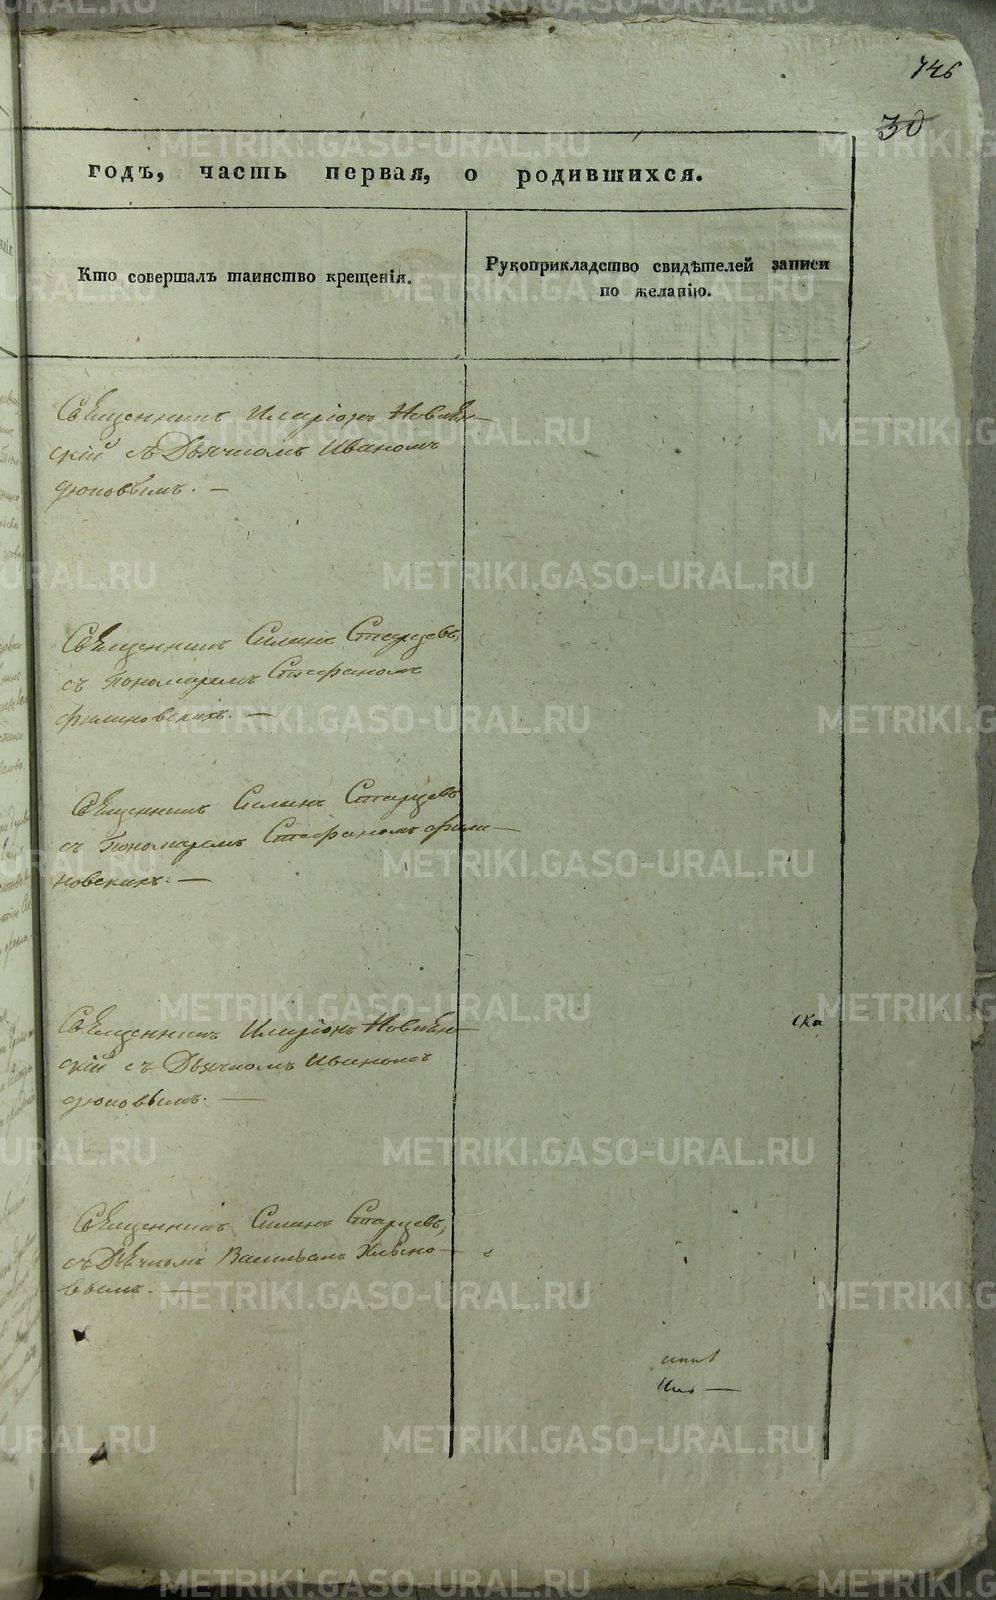 746
30
годъ, часть первая, о родившихся.
Кто совершалъ таинство крещенія.
Рукоприкладство свидѣтелей записи
по желанію.
Священникъ Иларіонъ
скій съ Дьячкомъ Иваномъ
Священникъ Силинъ Старцевъ,
съ Пономаремъ Стефаномъ
филиновскихъ. —
Священникъ Силинъ Старцевъ
съ Пономаремъ Стефаномъ фили—
новскихъ. —
Священникъ Иларіонъ
скій съ Дьячкомъ Иваномъ
Священникъ Силинъ Старцевъ,
съ Дьячкомъ Васильемъ Хлыно—
вымъ. —
METRIKI.GASO-URAL.RU